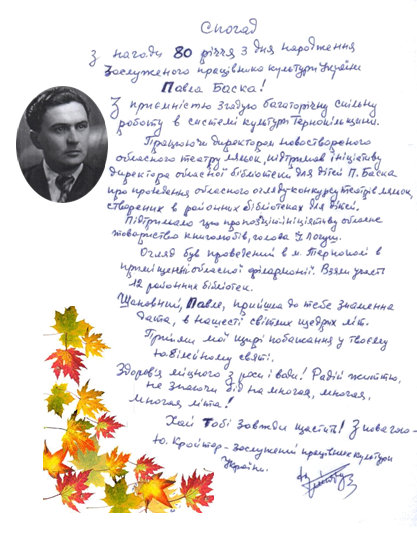 Спогад
з нагоди 80 річчя з дня народження
Заслуженого працівника культури України
Павла Баска!
З приємністю згадую багаторічну спільну
роботу в системі культури Тернопільщини.
Працюючи директором новоствореного
обласного театру ляльок, підтримав ініціативу
директора обласної бібліотеки для дітей П. Баска
про проведення обласного огляду-конкурсу театрів ляльок,
створених в районних бібліотеках для дітей.
Підтримало цю пропозицію-ініціативу обласне
товариство книголюбів, голова
Огляд був проведений в м. Тернополі в
приміщенні обласної філармонії. Взяли участь
12 районних бібліотек.
Шановний, Павле, прийшла до тебе знаменна
дата, в нашесті світлих щедрих літ.
Прийми мої щирі побажання у твоєму
Ювілейному святі.
Здоров'я міцного з роси і води! Радій життю,
не знаючи бід на многая, многая,
многая літа!
Хай Тобі завжди щастить! З повагою-
Ю. Кройтер - заслужений працівник культури
України.